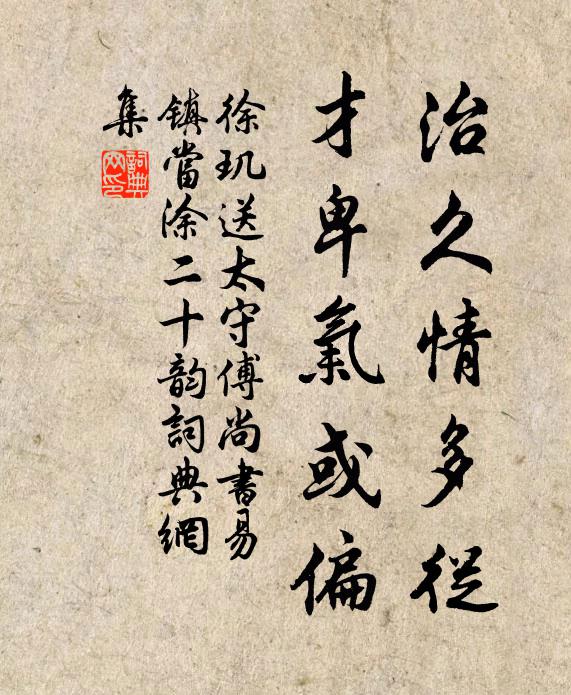 治久情多從
才卑氣或偏
徐玑送太守傅尚書易
鎮當涂二十韵詞典網
集
詞典網印